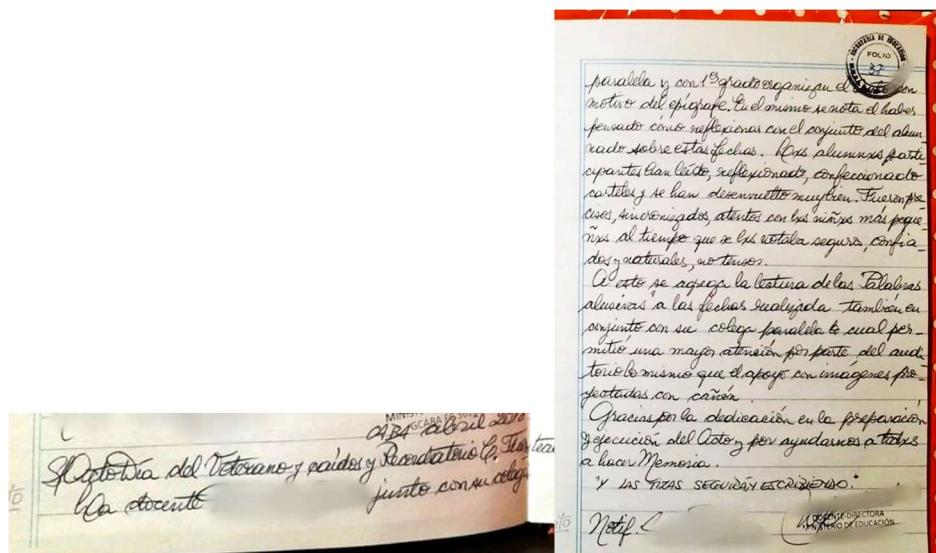 CABA Abril 201
S/ Acto Día del Veterano y caídos y Recordatorio C. Fuentea
La docente junto con su colega
SECRETARIA DE EDUCACION
FOLIO
37
paralela y con 1º grado organizan el Acto con
motivo del epígrafe. En el mismo se nota el haber
pensado cómo reflexionar con el conjunto del alum-
nado sobre estas fechas. Lxs alumnxs parti
cipantes han leído, reflexionado, confeccionado
carteles y se han desenvuelto muy bien. Fueron pre
cisos, sincronizados, atentos con lxs niñxs más peque
ñxs al tiempo que se lxs notaba seguros, confia-
dos y naturales, no tensos.
A esto se agrega la lectura de las "Palabras
alusivas" a las fechas realizada también en
conjunto con su colega paralela lo cual per-
mitió una mayor atención por parte del audi
torio lo mismo que el apoyo con imágenes pro-
yectadas con cañón.
Gracias por la dedicación en la preparación
y ejecución del Acto y por ayudarnos a todxs
a hacer Memoria.
"Y LAS TIZAS SEGUIRÁN ESCRIBIENDO."
Notif.
DOCENTE-DIRECTORA
MINISTERIO DE EDUCACIÓN